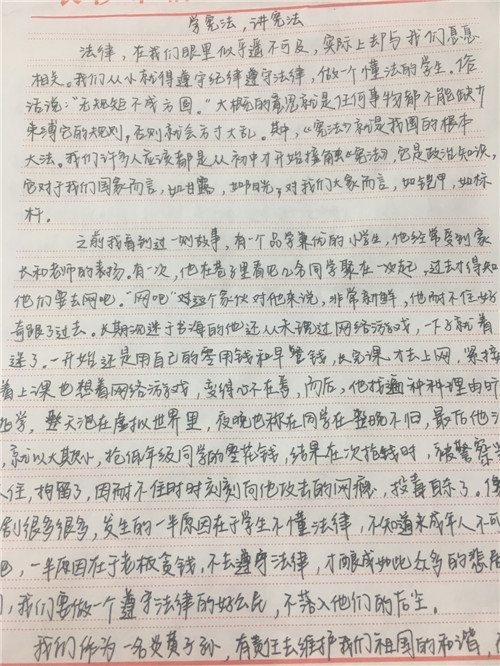 学宪法，讲宪法
法律，在我们眼里似乎遥不可及，实际上却与我们息息
相关。我们从小就得遵守纪律遵守法律，做一个懂法的学生。俗
话说："无规矩不成方圆。"大概的意思就是任何事物都不能缺少
束缚它的规则，否则就会方寸大乱。其中，《宪法》就是我国的根本
大法。我们许多人应该都是从初中才开始接触《宪法》，它是政治知识，
它对于我们国家而言，如甘露，如阳光，对我们大家而言，如铠甲，如标
杆。
之前我看到过一则故事，有个品学兼优的小学生，他经常受到家
长和老师的表扬。有一次，他在巷子里看见几名同学聚在一起，过去才得知
他们要去网吧。"网吧"对这个家伙对他来说，非常新鲜，他耐不住好
奇跟了过去。长期沉迷于书海的他还从未碰过网络游戏，一下子就着
迷了。一开始还是用自己的零用钱和早餐钱，上完课才去上网，紧接
着上课也想着网络游戏，变得心不在焉，而后，他找遍种种理由
学，整天泡在虚拟世界里，夜晚也称在同学在整晚不归，最后他
，就以大欺小，抢低年级同学的零花钱，结果在次抢钱时，被警察
人住，拘留了，因耐不住时时刻刻向他攻击的网瘾，投毒自杀了，像
例很多很多，发生的一半原因在于学生不懂法律，不知道未成年人不可
吧，一半原因在于老板贪钱，不去遵守法律，才酿成如此众多的悲
们，我们要做一个遵守法律的好公民，不落入他们的后尘。
我们作为一名炎黄子孙，有责任去维护我们祖国的和谐，